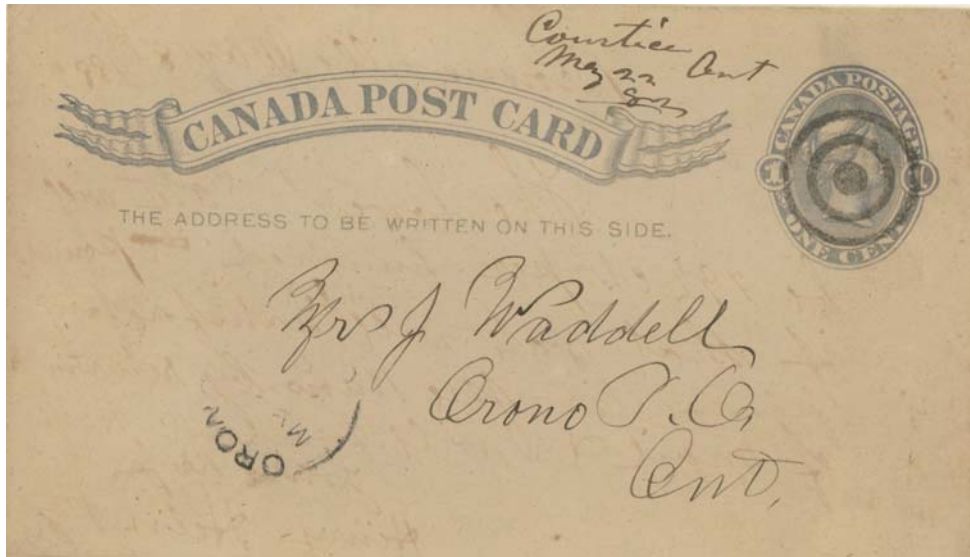 Courtice Ont
May 22
82
CANADA POST CARD
CANADA POSTAGE
1 1
ONE CENT
THE ADDRESS TO BE WRITTEN ON THIS SIDE.
Mr J Waddell
Orono P.O.
Ont.
ORON